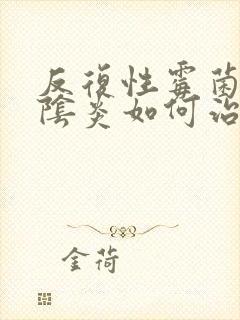 反復性霉菌
陰炎如何治
金荷